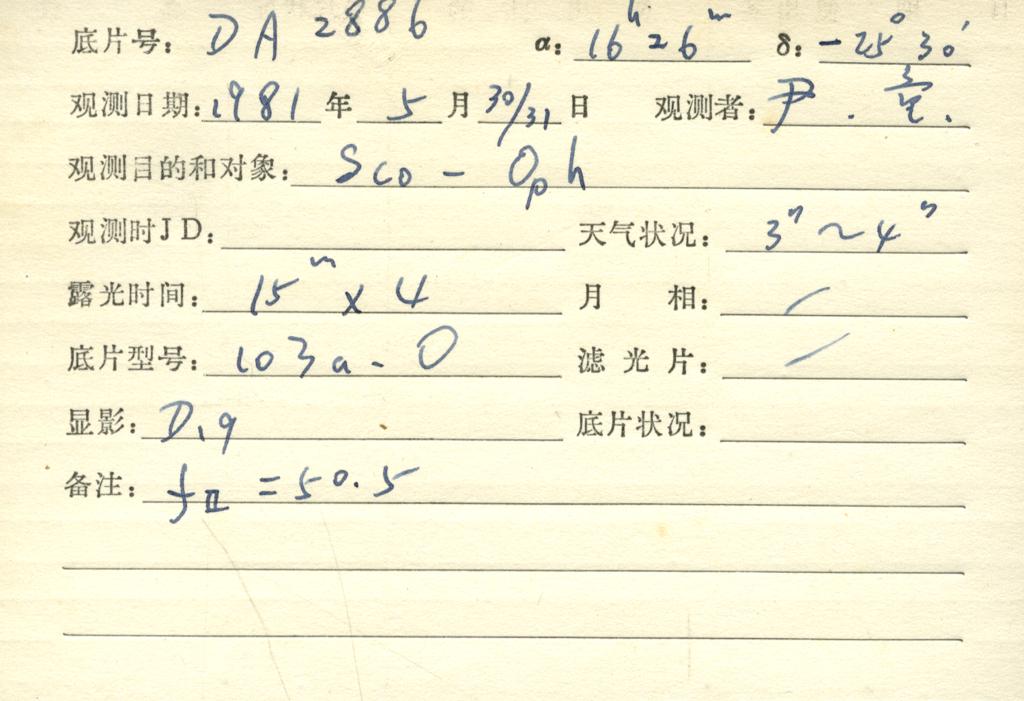 底片号: DA 2886 α: 16ʰ26ᵐ δ: -25°30′
观测日期: 1981 年 5 月 30/31 日 观测者: 尹.
观测目的和对象: Sco - Oph
观测时JD: 天气状况: 3ⁿ~4ⁿ
露光时间: 15ᵐ x 4 月 相: /
底片型号: 103a-O 滤 光 片: /
显影: D19 底片状况:
备注: fII = 50.5